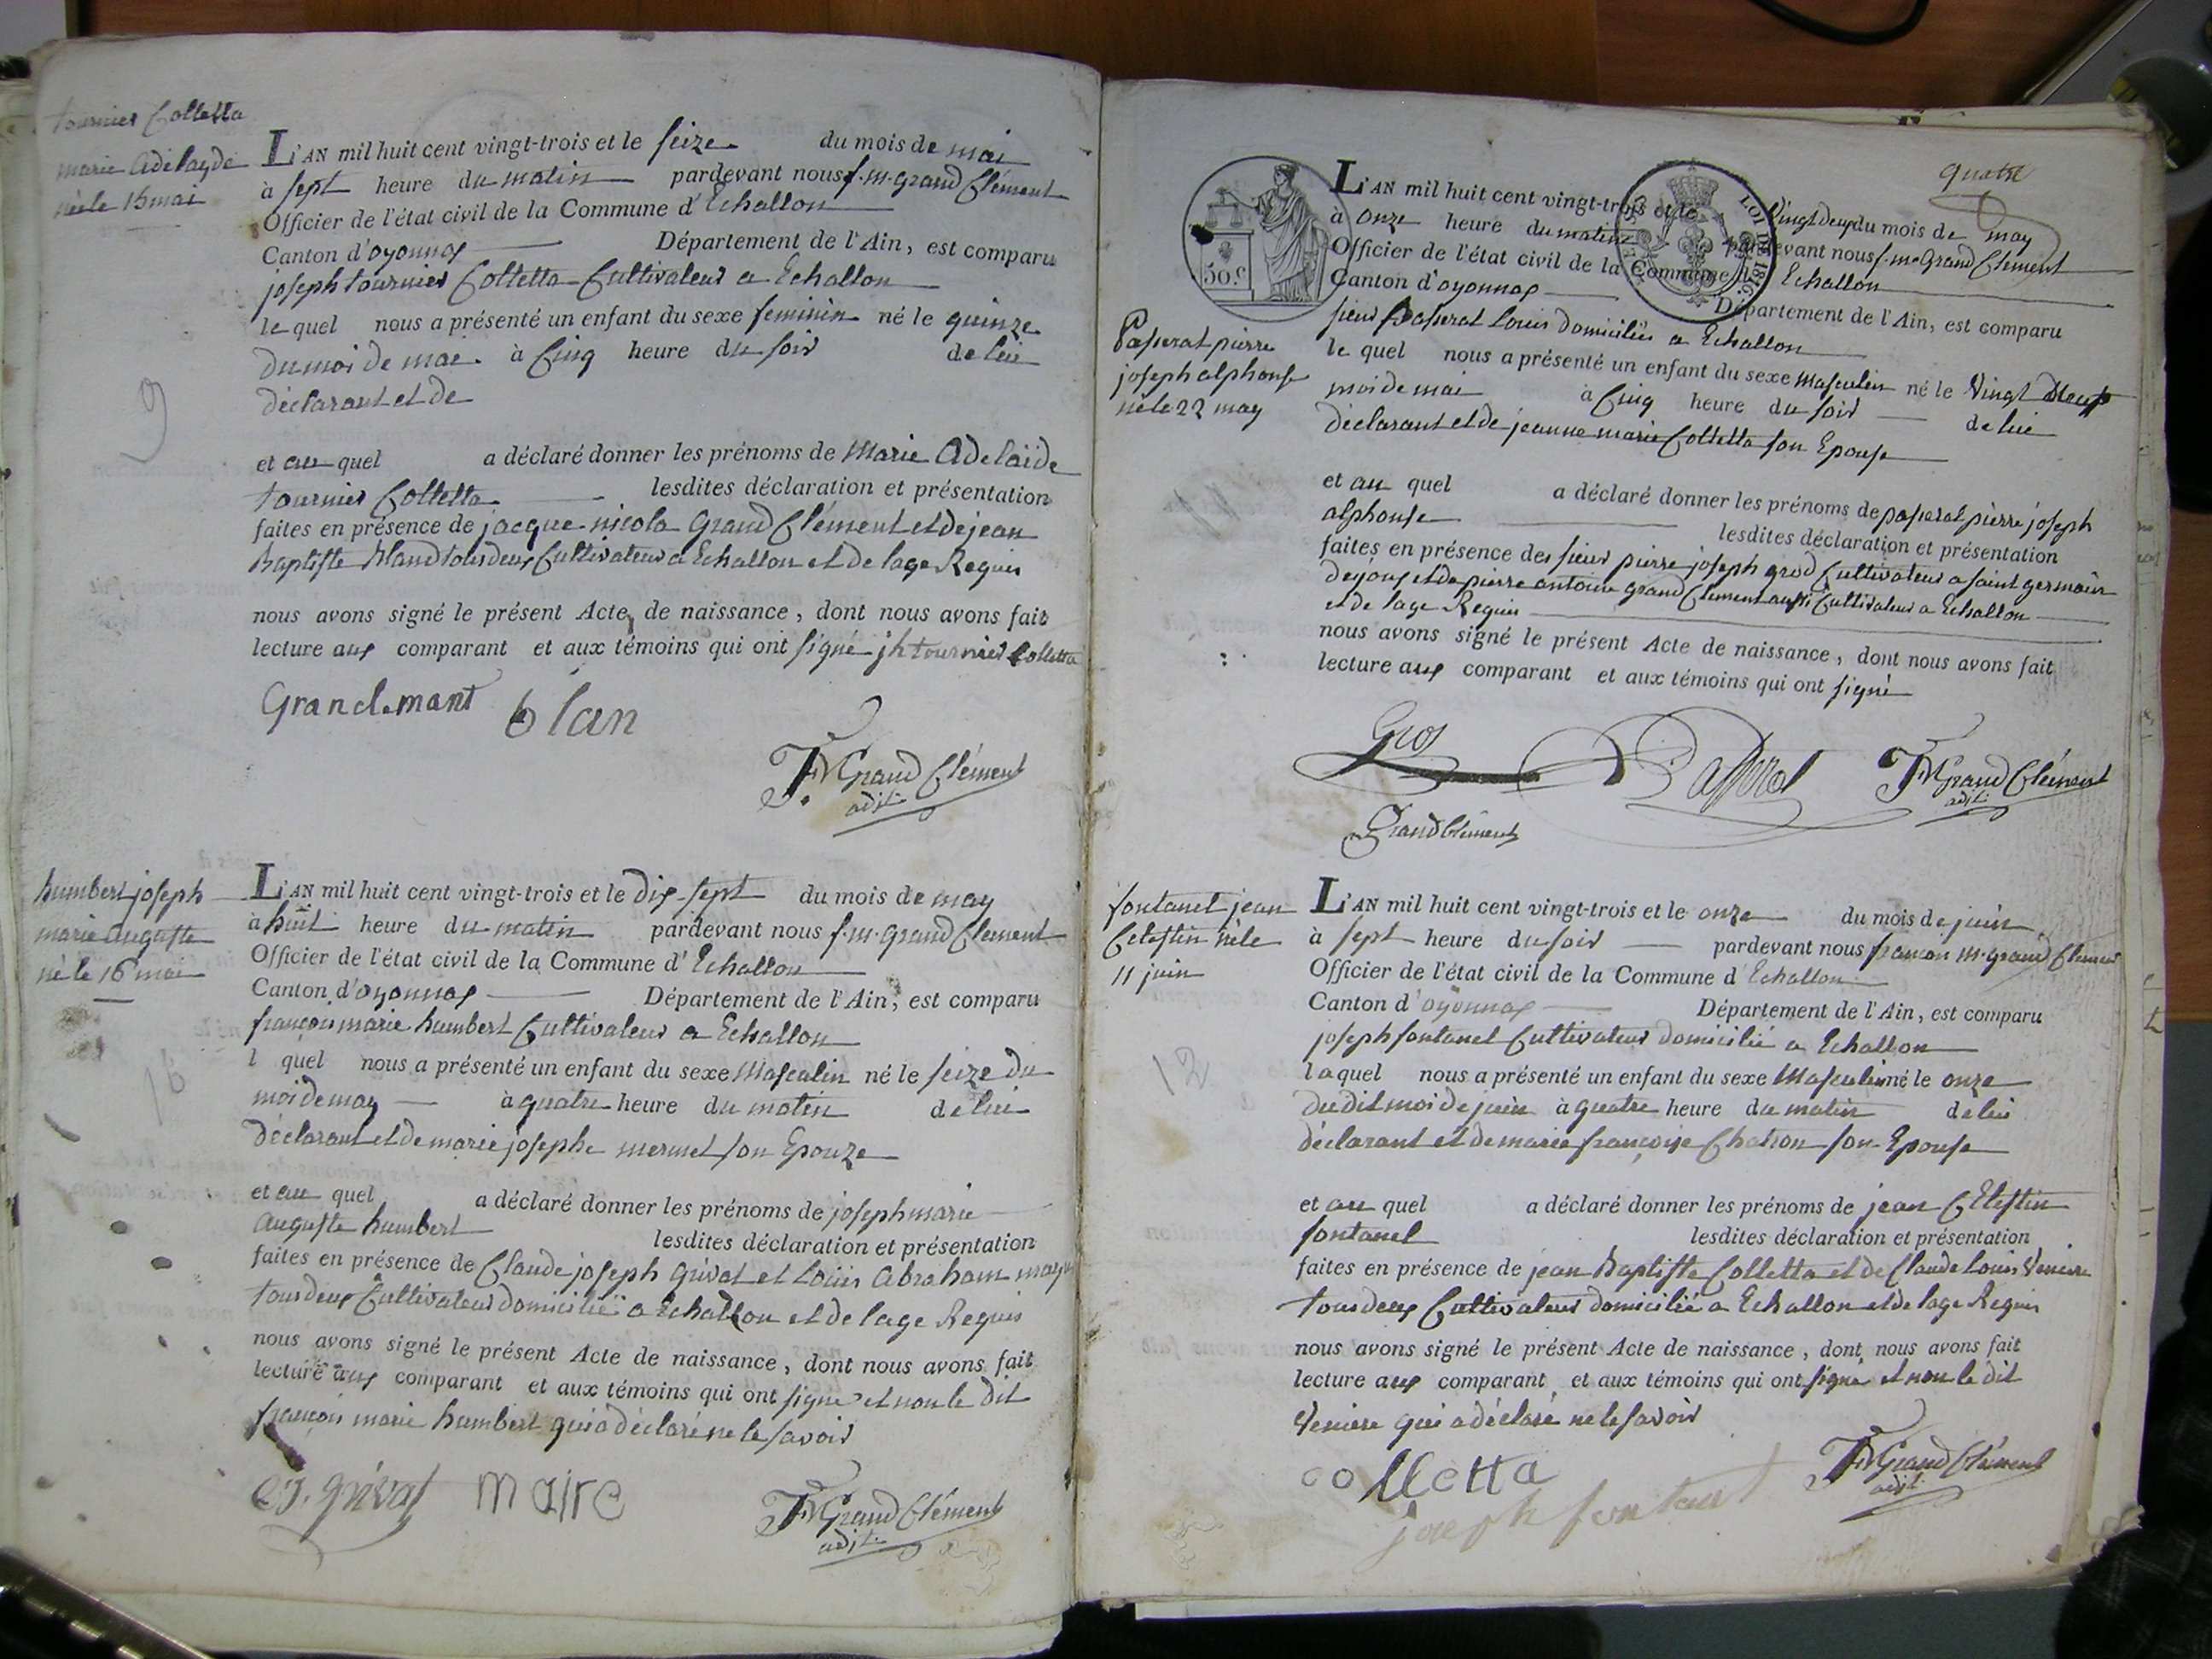 tournier Colletta
marie adelayde
née le 15 mai
L'AN mil huit cent vingt-trois et le seize du mois de mai
à sept heure du matin pardevant nous f. m. grand Clément
Officier de l'état civil de la Commune d'Echallon
Canton d'oyonnax Département de l'Ain, est comparu
joseph tournier Colletta Cultivateur a Echallon
le quel nous a présenté un enfant du sexe feminin né le quinze
du moi de mai à Cinq heure du soir de lui
déclarant et de
9
et au quel a déclaré donner les prénoms de Marie Adelaïde
tournier Colletta lesdites déclaration et présentation
faites en présence de jacque nicola Grand Clément et de jean
Baptiste Bland tous deux Cultivateur a Echallon et de lage Requis
nous avons signé le présent Acte de naissance, dont nous avons fait
lecture aux comparant et aux témoins qui ont signé jh tournier Colletta
Grandclemant blan
FM Grand Clément
adjt
humbert joseph
marie auguste
né le 16 mai
L'AN mil huit cent vingt-trois et le dix-sept du mois de may
à huit heure du matin pardevant nous f. m. grand Clement
Officier de l'état civil de la Commune d'Echallon
Canton d'oyonnax Département de l'Ain, est comparu
françois marie humbert Cultivateur a Echallon
l quel nous a présenté un enfant du sexe Masculin né le seize du
moi de may à quatre heure du matin de lui
déclarant et de marie josephe mermet son Epouze
10
et au quel a déclaré donner les prénoms de joseph marie
auguste humbert lesdites déclaration et présentation
faites en présence de Claude joseph Grivat et Louis abraham
tous deux Cultivateur domicilié a Echallon et de lage Requis
nous avons signé le présent Acte de naissance, dont nous avons fait
lecture aux comparant et aux témoins qui ont signe et non le dit
françois marie humbert qui a déclaré ne le savoir
C J. grivat maire
FM Grand Clément
adjt
quatre
50 c.
LOI DE 1816
L'AN mil huit cent vingt-trois et le Vingt deux du mois de may
à onze heure du matin pardevant nous f. m. Grand Clement
Officier de l'état civil de la Commune d'Echallon
Canton d'oyonnax Département de l'Ain, est comparu
sieur Passerat Louis domiciliés a Echallon
Passerat pierre
joseph alphonse
né le 22 may
le quel nous a présenté un enfant du sexe masculin né le Vingt Deux
moi de mai à Cinq heure du soir de lui
déclarant et de jeanne marie Colletta son Epouse
11
et au quel a déclaré donner les prénoms de passerat pierre joseph
alphonse lesdites déclaration et présentation
faites en présence des sieur pierre joseph grod Cultivateur a saint germain
dejoux et de pierre antoine grand Clement aussi Cultivateur a Echallon
et de lage Requis
nous avons signé le présent Acte de naissance, dont nous avons fait
lecture aux comparant et aux témoins qui ont signé
Gros Passerat FM Grand Clément
adjt
Grand Clément
fontanel jean
Celestin né le
11 juin
L'AN mil huit cent vingt-trois et le onze du mois de juin
à sept heure du soir pardevant nous françois m. grand Clement
Officier de l'état civil de la Commune d'Echallon
Canton d'oyonnax Département de l'Ain, est comparu
joseph fontanel Cultivateur domicilié a Echallon
laquel nous a présenté un enfant du sexe Masculin né le onze
du dit moi de juin à quatre heure du matin de lui
déclarant et de marie françoise Chatron son Epouse
12
et au quel a déclaré donner les prénoms de jean Célestin
fontanel lesdites déclaration et présentation
faites en présence de jean Baptiste Colletta et de Claude Louis Veniere
tous deux Cultivateur domicilié a Echallon et de lage Requis
nous avons signé le présent Acte de naissance, dont nous avons fait
lecture aux comparant et aux témoins qui ont signé et non le dit
Veniere qui a déclaré ne le savoir
colletta
joseph fontanel
FM Grand Clément
adjt